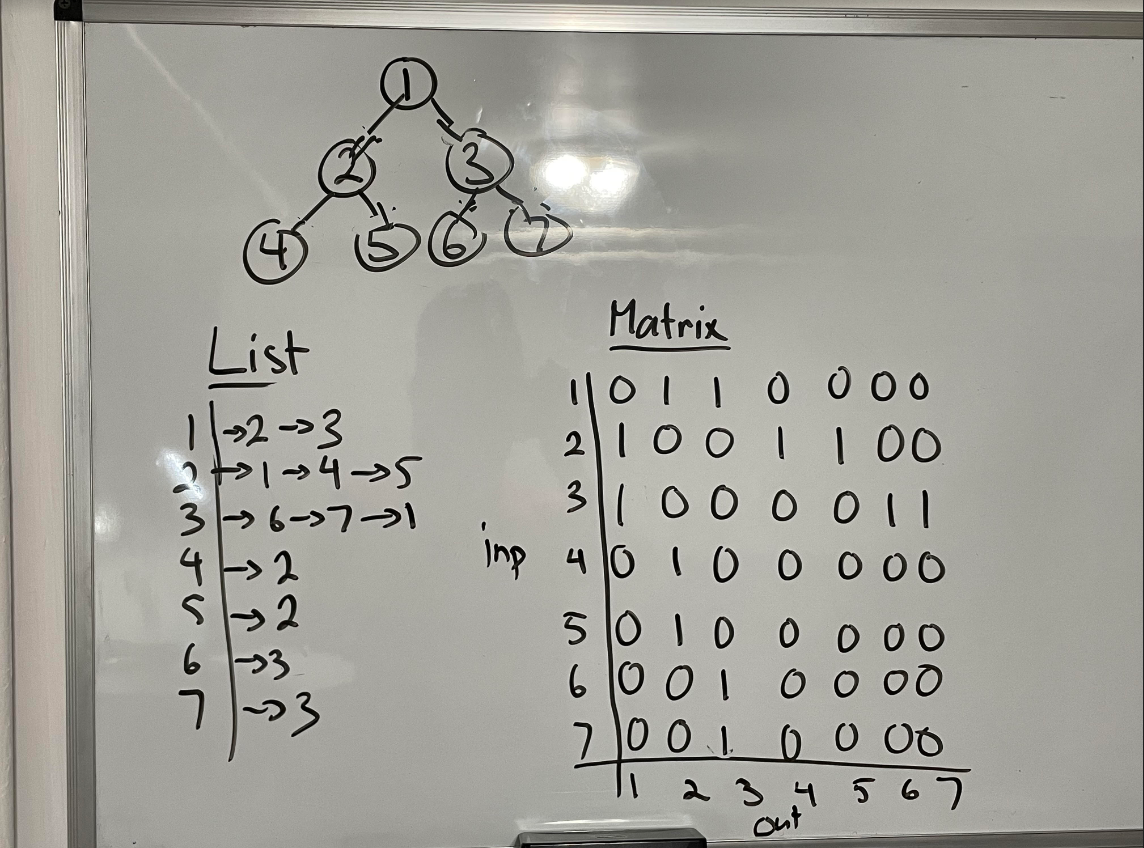 1
2 3
4 5 6 7
List
1 | →2 →3
2 | →1 →4 →5
3 | →6 →7 →1
4 | →2
5 | →2
6 | →3
7 | →3
Matrix
1 | 0 1 1 0 0 0 0
2 | 1 0 0 1 1 0 0
3 | 1 0 0 0 0 1 1
inp 4 | 0 1 0 0 0 0 0
5 | 0 1 0 0 0 0 0
6 | 0 0 1 0 0 0 0
7 | 0 0 1 0 0 0 0
1 2 3 4 5 6 7
out